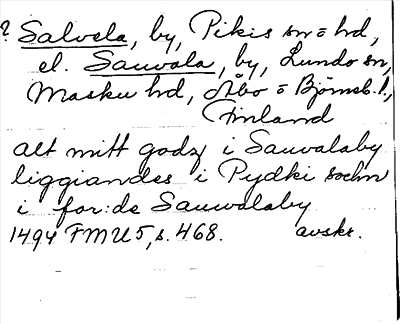 ? Salvela, by, Pikis sn o hd,
el. Sauvala, by, Lundo sn,
Masku hd, Åbo o Björneb. l,
Finland
alt mitt godz i Sauvalaby
liggiandes i Pydki sochn
i for:de Sauwalaby
1494 FMU 5, s. 468. avskr.